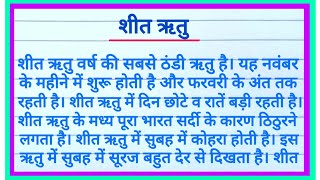 शीत ऋतु
शीत ऋतु वर्ष की सबसे ठंडी ऋतु है। यह नवंबर
के महीने में शुरू होती है और फरवरी के अंत तक
रहती है। शीत ऋतु में दिन छोटे व रातें बड़ी रहती है।
शीत ऋतु के मध्य पूरा भारत सर्दी के कारण ठिठुरने
लगता है। शीत ऋतु में सुबह में कोहरा होती है। इस
ऋतु में सुबह में सूरज बहुत देर से दिखता है। शीत